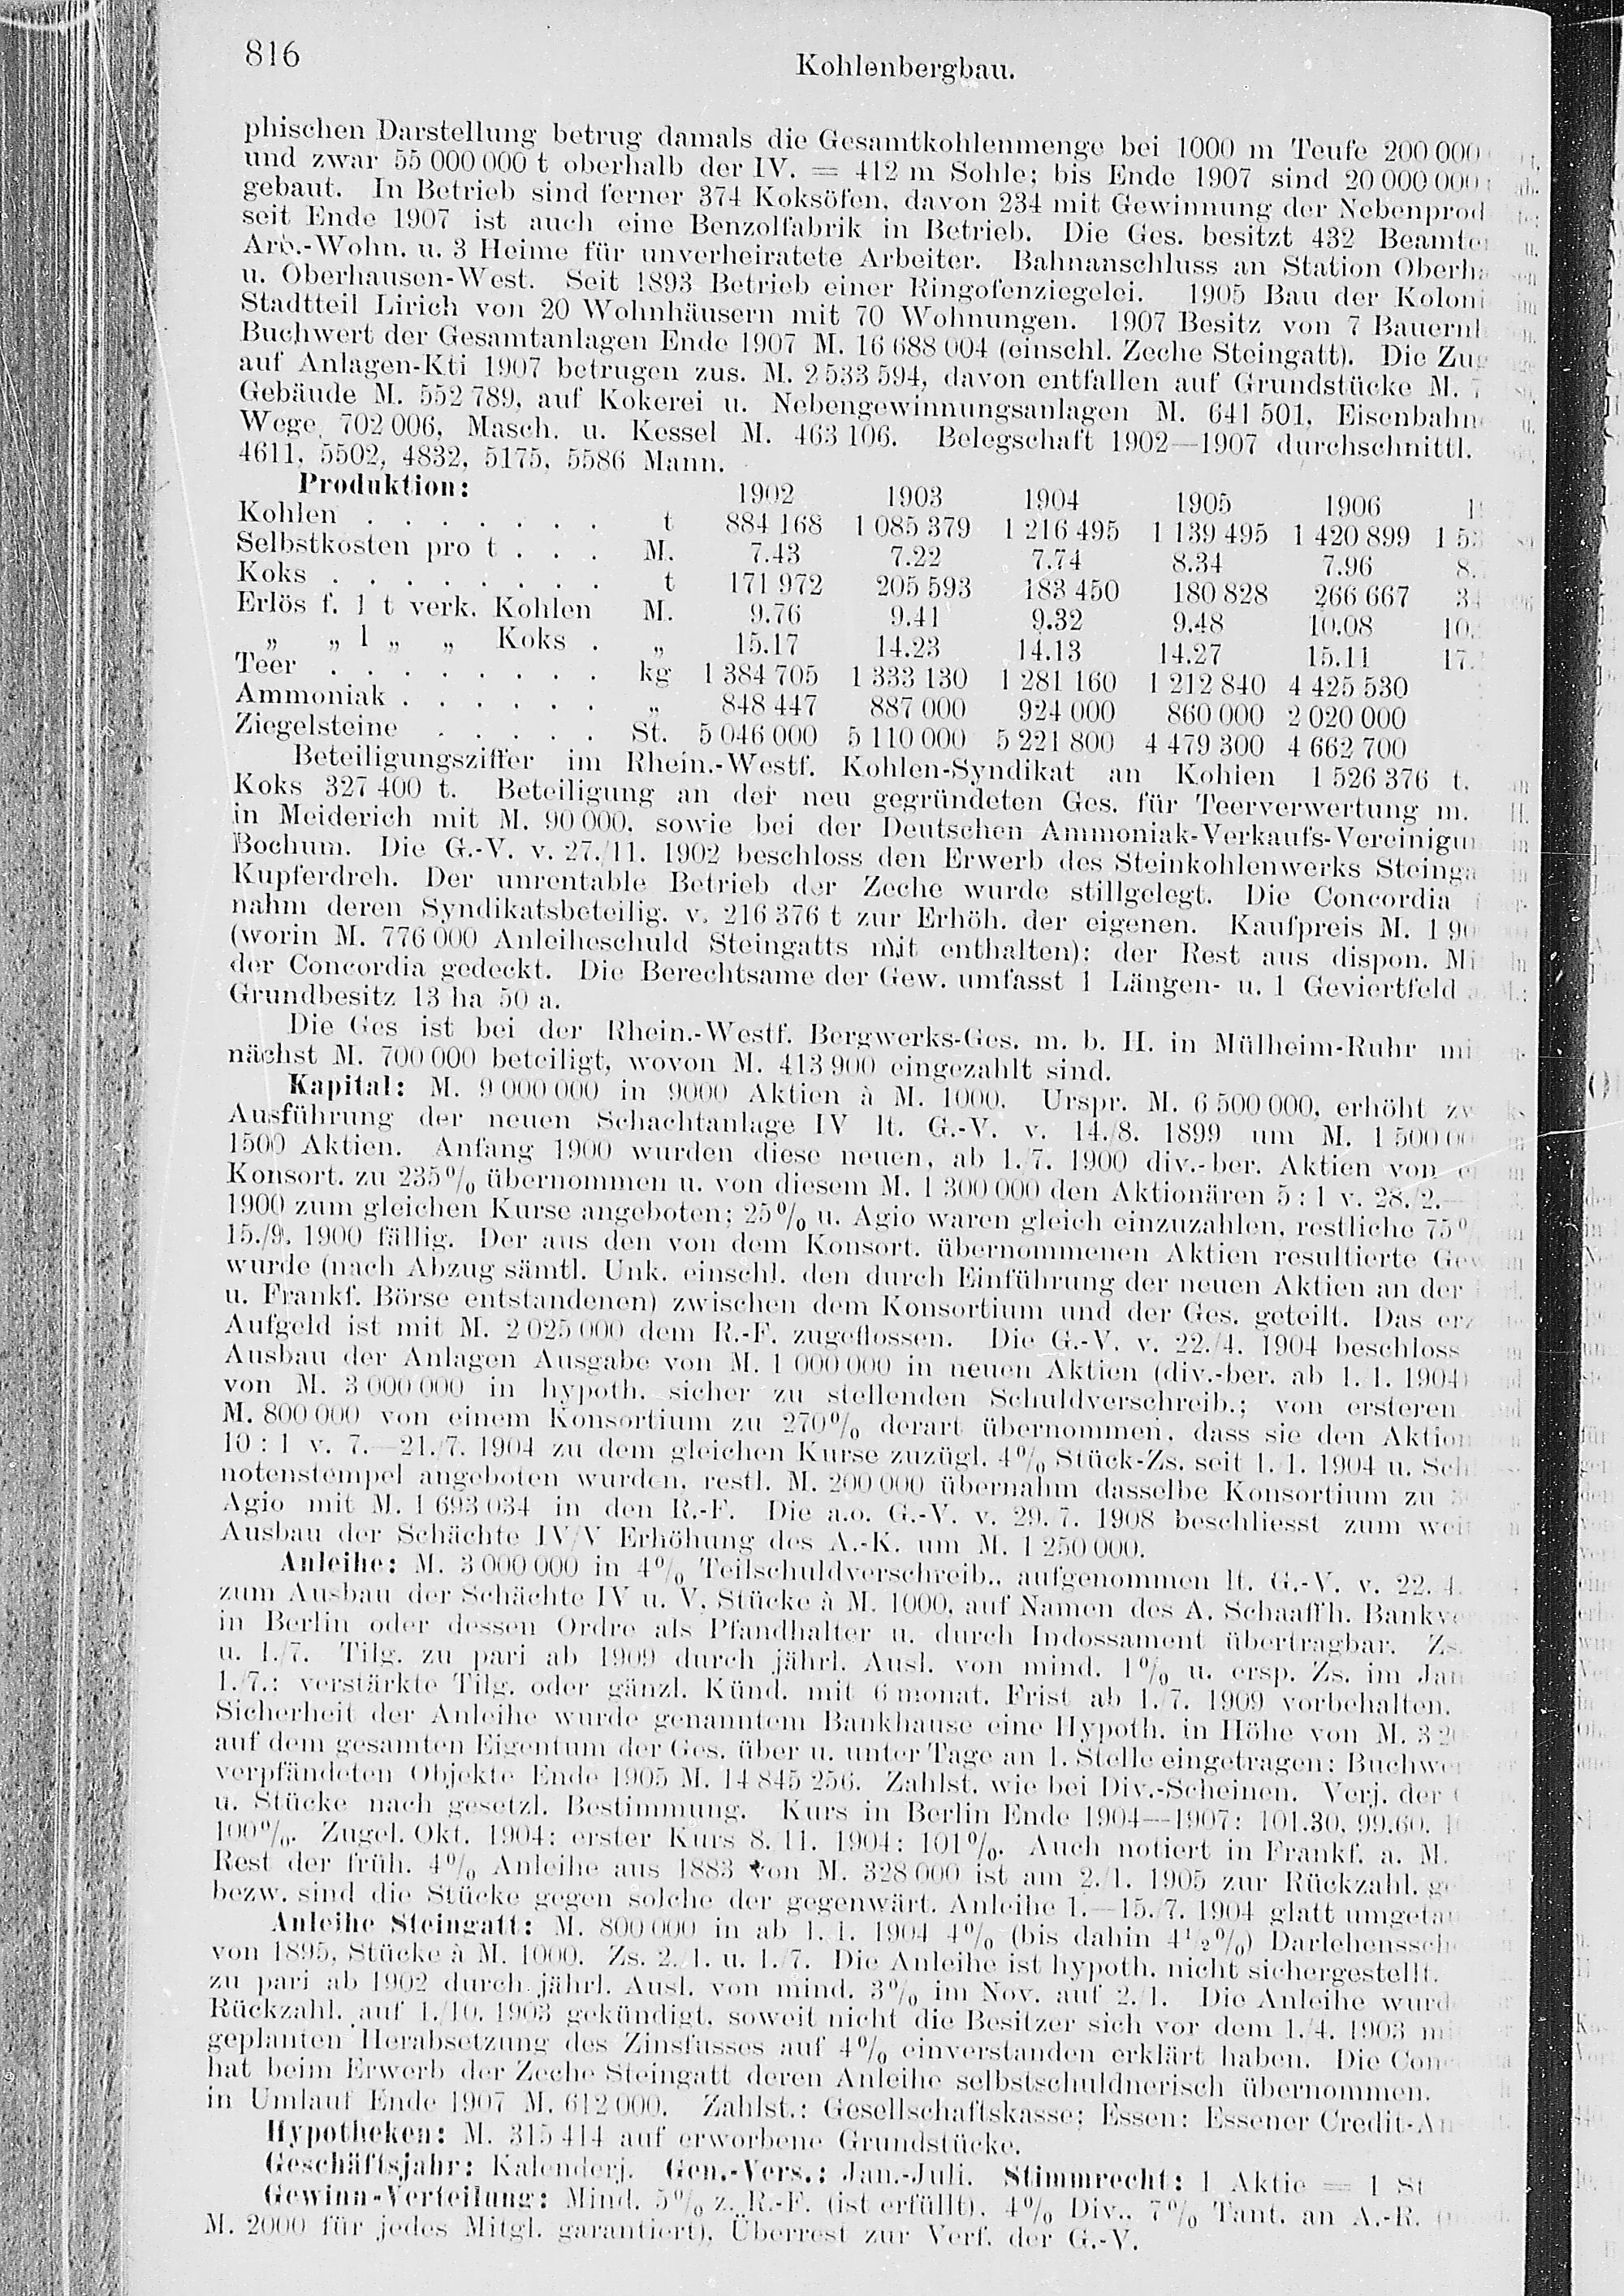 816
Kohlenbergbau.
phischen Darstellung betrug damals die Gesamtkohlenmenge bei 1000 m Teufe 200 000
und zwar 55 000 000 t oberhalb der IV. = 412 m Sohle; bis Ende 1907 sind 20 000 000 t
gebaut. In Betrieb sind ferner 374 Koksöfen, davon 234 mit Gewinnung der Nebenprod
seit Ende 1907 ist auch eine Benzolfabrik in Betrieb. Die Ges. besitzt 432 Beamte
Arb.-Wohn. u. 3 Heime für unverheiratete Arbeiter. Bahnanschluss an Station Oberha
u. Oberhausen-West. Seit 1893 Betrieb einer Ringofenziegelei. 1905 Bau der Koloni
Stadtteil Lirich von 20 Wohnhäusern mit 70 Wohnungen. 1907 Besitz von 7 Bauernh
Buchwert der Gesamtanlagen Ende 1907 M. 16 688 004 (einschl. Zeche Steingatt). Die Zug
auf Anlagen-Kti 1907 betrugen zus. M. 2 533 594, davon entfallen auf Grundstücke M. 7
Gebäude M. 552 789, auf Kokerei u. Nebengewinnungsanlagen M. 641 501, Eisenbahn
Wege, 702 006, Masch. u. Kessel M. 463 106. Belegschaft 1902—1907 durchschnittl.
4611, 5502, 4832, 5175, 5586 Mann.
Produktion: 1902 1903 1904 1905 1906 1
Kohlen . . . . . . . t 884 168 1 085 379 1 216 495 1 139 495 1 420 899 1 5
Selbstkosten pro t . . . M. 7.43 7.22 7.74 8.34 7.96 8.
Koks . . . . . . . . t 171 972 205 593 183 450 180 828 266 667 34
Erlös f. 1 t verk. Kohlen M. 9.76 9.41 9.32 9.48 10.08 10.
„ „ 1 „ „ Koks . „ 15.17 14.23 14.13 14.27 15.11 17.
Teer . . . . . . . . kg 1 384 705 1 333 130 1 281 160 1 212 840 4 425 530
Ammoniak . . . . . . „ 848 447 887 000 924 000 860 000 2 020 000
Ziegelsteine . . . . . St. 5 046 000 5 110 000 5 221 800 4 479 300 4 662 700
Beteiligungsziffer im Rhein.-Westf. Kohlen-Syndikat an Kohlen 1 526 376 t.
Koks 327 400 t. Beteiligung an der neu gegründeten Ges. für Teerverwertung m. H.
in Meiderich mit M. 90 000, sowie bei der Deutschen Ammoniak-Verkaufs-Vereinigun in
Bochum. Die G.-V. v. 27./11. 1902 beschloss den Erwerb des Steinkohlenwerks Steinga
Kupferdreh. Der unrentable Betrieb der Zeche wurde stillgelegt. Die Concordia
nahm deren Syndikatsbeteilig. v. 216 376 t zur Erhöh. der eigenen. Kaufpreis M. 1 90
(worin M. 776 000 Anleiheschuld Steingatts mit enthalten); der Rest aus dispon. Mi
der Concordia gedeckt. Die Berechtsame der Gew. umfasst 1 Längen- u. 1 Geviertfeld
Grundbesitz 13 ha 50 a.
Die Ges ist bei der Rhein.-Westf. Bergwerks-Ges. m. b. H. in Mülheim-Ruhr mi
nächst M. 700 000 beteiligt, wovon M. 413 900 eingezahlt sind.
Kapital: M. 9 000 000 in 9000 Aktien à M. 1000. Urspr. M. 6 500 000, erhöht zw
Ausführung der neuen Schachtanlage IV lt. G.-V. v. 14./8. 1899 um M. 1 500 00
1500 Aktien. Anfang 1900 wurden diese neuen, ab 1./7. 1900 div.-ber. Aktien von e
Konsort. zu 235% übernommen u. von diesem M. 1 300 000 den Aktionären 5 : 1 v. 28./2.—
1900 zum gleichen Kurse angeboten; 25% u. Agio waren gleich einzuzahlen, restliche 75%
15./9. 1900 fällig. Der aus den von dem Konsort. übernommenen Aktien resultierte Gew
wurde (nach Abzug sämtl. Unk. einschl. den durch Einführung der neuen Aktien an der
u. Frankf. Börse entstandenen) zwischen dem Konsortium und der Ges. geteilt. Das erz
Aufgeld ist mit M. 2 025 000 dem R.-F. zugeflossen. Die G.-V. v. 22./4. 1904 beschloss
Ausbau der Anlagen Ausgabe von M. 1 000 000 in neuen Aktien (div.-ber. ab 1./1. 1904)
von M. 3 000 000 in hypoth. sicher zu stellenden Schuldverschreib.; von ersteren
M. 800 000 von einem Konsortium zu 270% derart übernommen, dass sie den Aktion
10 : 1 v. 7.—21./7. 1904 zu dem gleichen Kurse zuzügl. 4% Stück-Zs. seit 1./1. 1904 u. Schl
notenstempel angeboten wurden, restl. M. 200 000 übernahm dasselbe Konsortium zu
Agio mit M. 1 693 034 in den R.-F. Die a.o. G.-V. v. 29./7. 1908 beschliesst zum weit
Ausbau der Schächte IV/V Erhöhung des A.-K. um M. 1 250 000.
Anleihe: M. 3 000 000 in 4% Teilschuldverschreib., aufgenommen lt. G.-V. v. 22./4.
zum Ausbau der Schächte IV u. V, Stücke à M. 1000, auf Namen des A. Schaaffh. Bankve
in Berlin oder dessen Ordre als Pfandhalter u. durch Indossament übertragbar. Zs.
u. 1./7. Tilg. zu pari ab 1909 durch jährl. Ausl. von mind. 1% u. ersp. Zs. im Jan
1./7.; verstärkte Tilg. oder gänzl. Künd. mit 6 monat. Frist ab 1./7. 1909 vorbehalten.
Sicherheit der Anleihe wurde genanntem Bankhause eine Hypoth. in Höhe von M. 3 2
auf dem gesamten Eigentum der Ges. über u. unter Tage an 1. Stelle eingetragen; Buchwe
verpfändeten Objekte Ende 1905 M. 14 845 256. Zahlst. wie bei Div.-Scheinen. Verj. der
u. Stücke nach gesetzl. Bestimmung. Kurs in Berlin Ende 1904—1907: 101.30, 99.60,
100%. Zugel. Okt. 1904; erster Kurs 8./11. 1904: 101%. Auch notiert in Frankf. a. M.
Rest der früh. 4% Anleihe aus 1883 von M. 328 000 ist am 2./1. 1905 zur Rückzahl. ge
bezw. sind die Stücke gegen solche der gegenwärt. Anleihe 1.—15./7. 1904 glatt umgetau
Anleihe Steingatt: M. 800 000 in ab 1./1. 1904 4% (bis dahin 4½%) Darlehenssch
von 1895, Stücke à M. 1000. Zs. 2./1. u. 1./7. Die Anleihe ist hypoth. nicht sichergestellt.
zu pari ab 1902 durch jährl. Ausl. von mind. 3% im Nov. auf 2./1. Die Anleihe wurd
Rückzahl. auf 1./10. 1903 gekündigt, soweit nicht die Besitzer sich vor dem 1./4. 1903 mi
geplanten Herabsetzung des Zinsfusses auf 4% einverstanden erklärt haben. Die Conc
hat beim Erwerb der Zeche Steingatt deren Anleihe selbstschuldnerisch übernommen.
in Umlauf Ende 1907 M. 612 000. Zahlst.: Gesellschaftskasse; Essen: Essener Credit-An
Hypotheken: M. 315 414 auf erworbene Grundstücke.
Geschäftsjahr: Kalenderj. Gen.-Vers.: Jan.-Juli. Stimmrecht: 1 Aktie = 1 St
Gewinn-Verteilung: Mind. 5% z. R.-F. (ist erfüllt), 4% Div., 7% Tant. an A.-R.
M. 2000 für jedes Mitgl. garantiert), Überrest zur Verf. der G.-V.